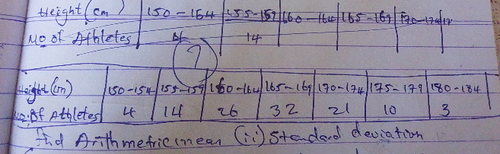 Height (cm) 150-154 155-159 160-164 165-169 170-174
No of Athletes 14
7
Height (cm) 150-154 155-159 160-164 165-169 170-174 175-179 180-184
No. of Athletes 4 14 26 32 21 10 3
Find Arithmetric mean (ii) Standard deviation